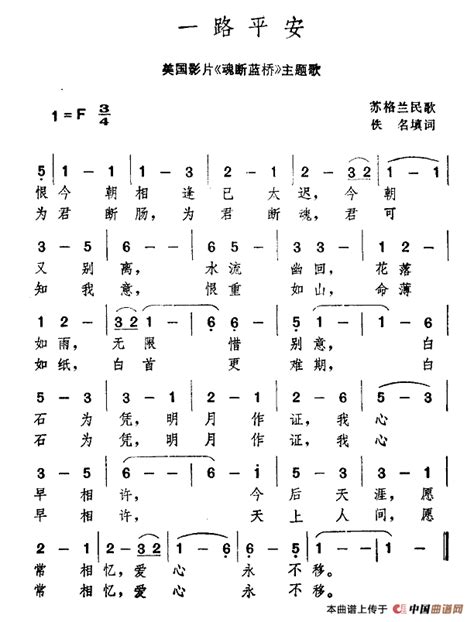 一路平安
美国影片《魂断蓝桥》主题歌
1=F 3/4
苏格兰民歌
佚 名填词
5 | 1 - 1 | 1 - 3 | 2 - 1 | 2 - 32 | 1 - 1
恨今朝相逢已太迟，今朝
为君断肠，为君断魂，君可
3 - 5 | 6 - - | 6 - 6 | 5 - 3 | 3 - 1
又别离，水流幽回，花落
知我意，恨重如山，命薄
1 2 - | 2 - 32 | 1 - 6 | 6 - 5 | 1 - - | 1 - 6
如雨，无限惜别意，白
如纸，白首更难期，白
5 - 3 | 3 - 1 | 2 - 1 | 2 - 6 | 5 - 3
石为凭，明月作证，我心
石为凭，明月作证，我心
3 - 5 | 6 - - | 6 - i | 5 - 3 | 3 - 1
早相许，今后天涯，愿
早相许，天上人间，愿
2 - 1 | 2 - 32 | 1 - 6 | 6 - 5 | 1 - - | 1 -
常相忆，爱心永不移。
常相忆，爱心永不移。
本曲谱上传于 中国曲谱网